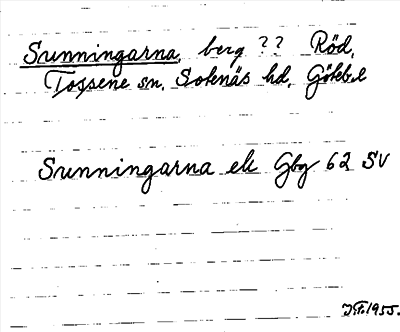 Sunningarna, berg ?? Röd,
Tossene sn, Sotenäs hd, Götebl
Sunningarna ek Gbg 62 SV
J.F. 1955.